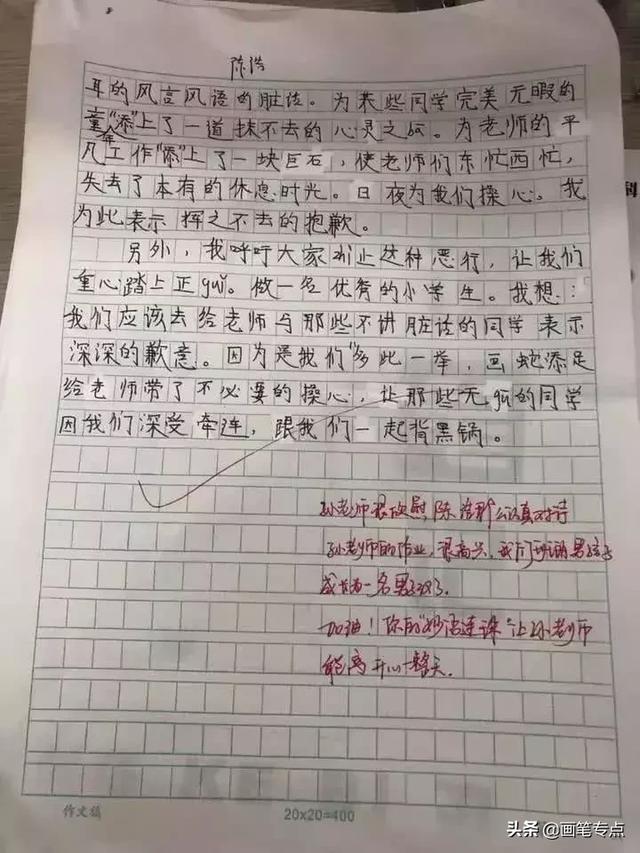 陈浩
耳的风言风语的脏话。为某些同学完美无暇的
童年"添"上了一道抹不去的心灵之
为老师的平
凡工作"添"上了一块巨石,使老师们东忙西忙,
失去了本有的休息时光。日夜为我们操心。我
为此表示挥之不去的抱歉。
另外,我呼吁大家制止这种恶行,让我们
重心踏上正guǐ。做一名优秀的小学生。我想:
我们应该去给老师与那些不讲脏话的同学表示
深深的歉意。因为是我们"多此一举,画蛇添足
给老师带了不必要的操心,让那些无gū的同学
因我们深受牵连,跟我们一起背黑锅。
孙老师很欣慰,陈浩那么认真对待
孙老师的作业,很高兴,我们班的男孩
成长为一名男子汉了.
加油!你的"妙语连珠"让孙老师
能开心一整天.
作文稿
20x20=400
头条 @画笔专点